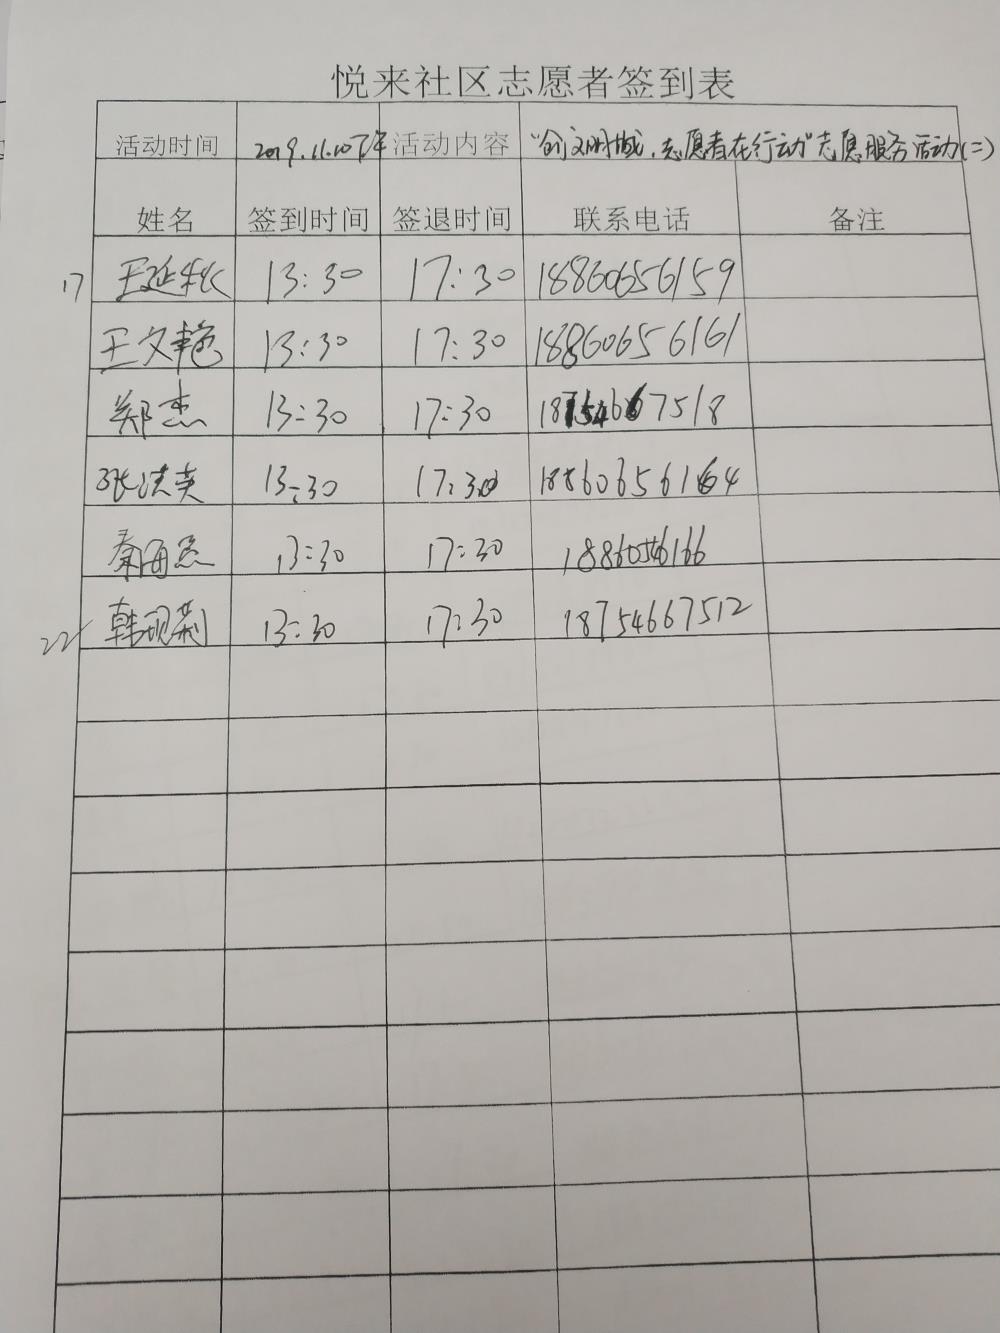 悦来社区志愿者签到表
活动时间 2019.11.10下午 活动内容 "创文明城，志愿者在行动"志愿服务活动(二)
姓名 签到时间 签退时间 联系电话 备注
17 王延秋 13:30 17:30 18860656159
王文艳 13:30 17:30 18860656161
郑杰 13:30 17:30 18754667518
张洪英 13:30 17:30 18860656164
秦海燕 13:30 17:30
22 韩现菊 13:30 17:30 18754667512